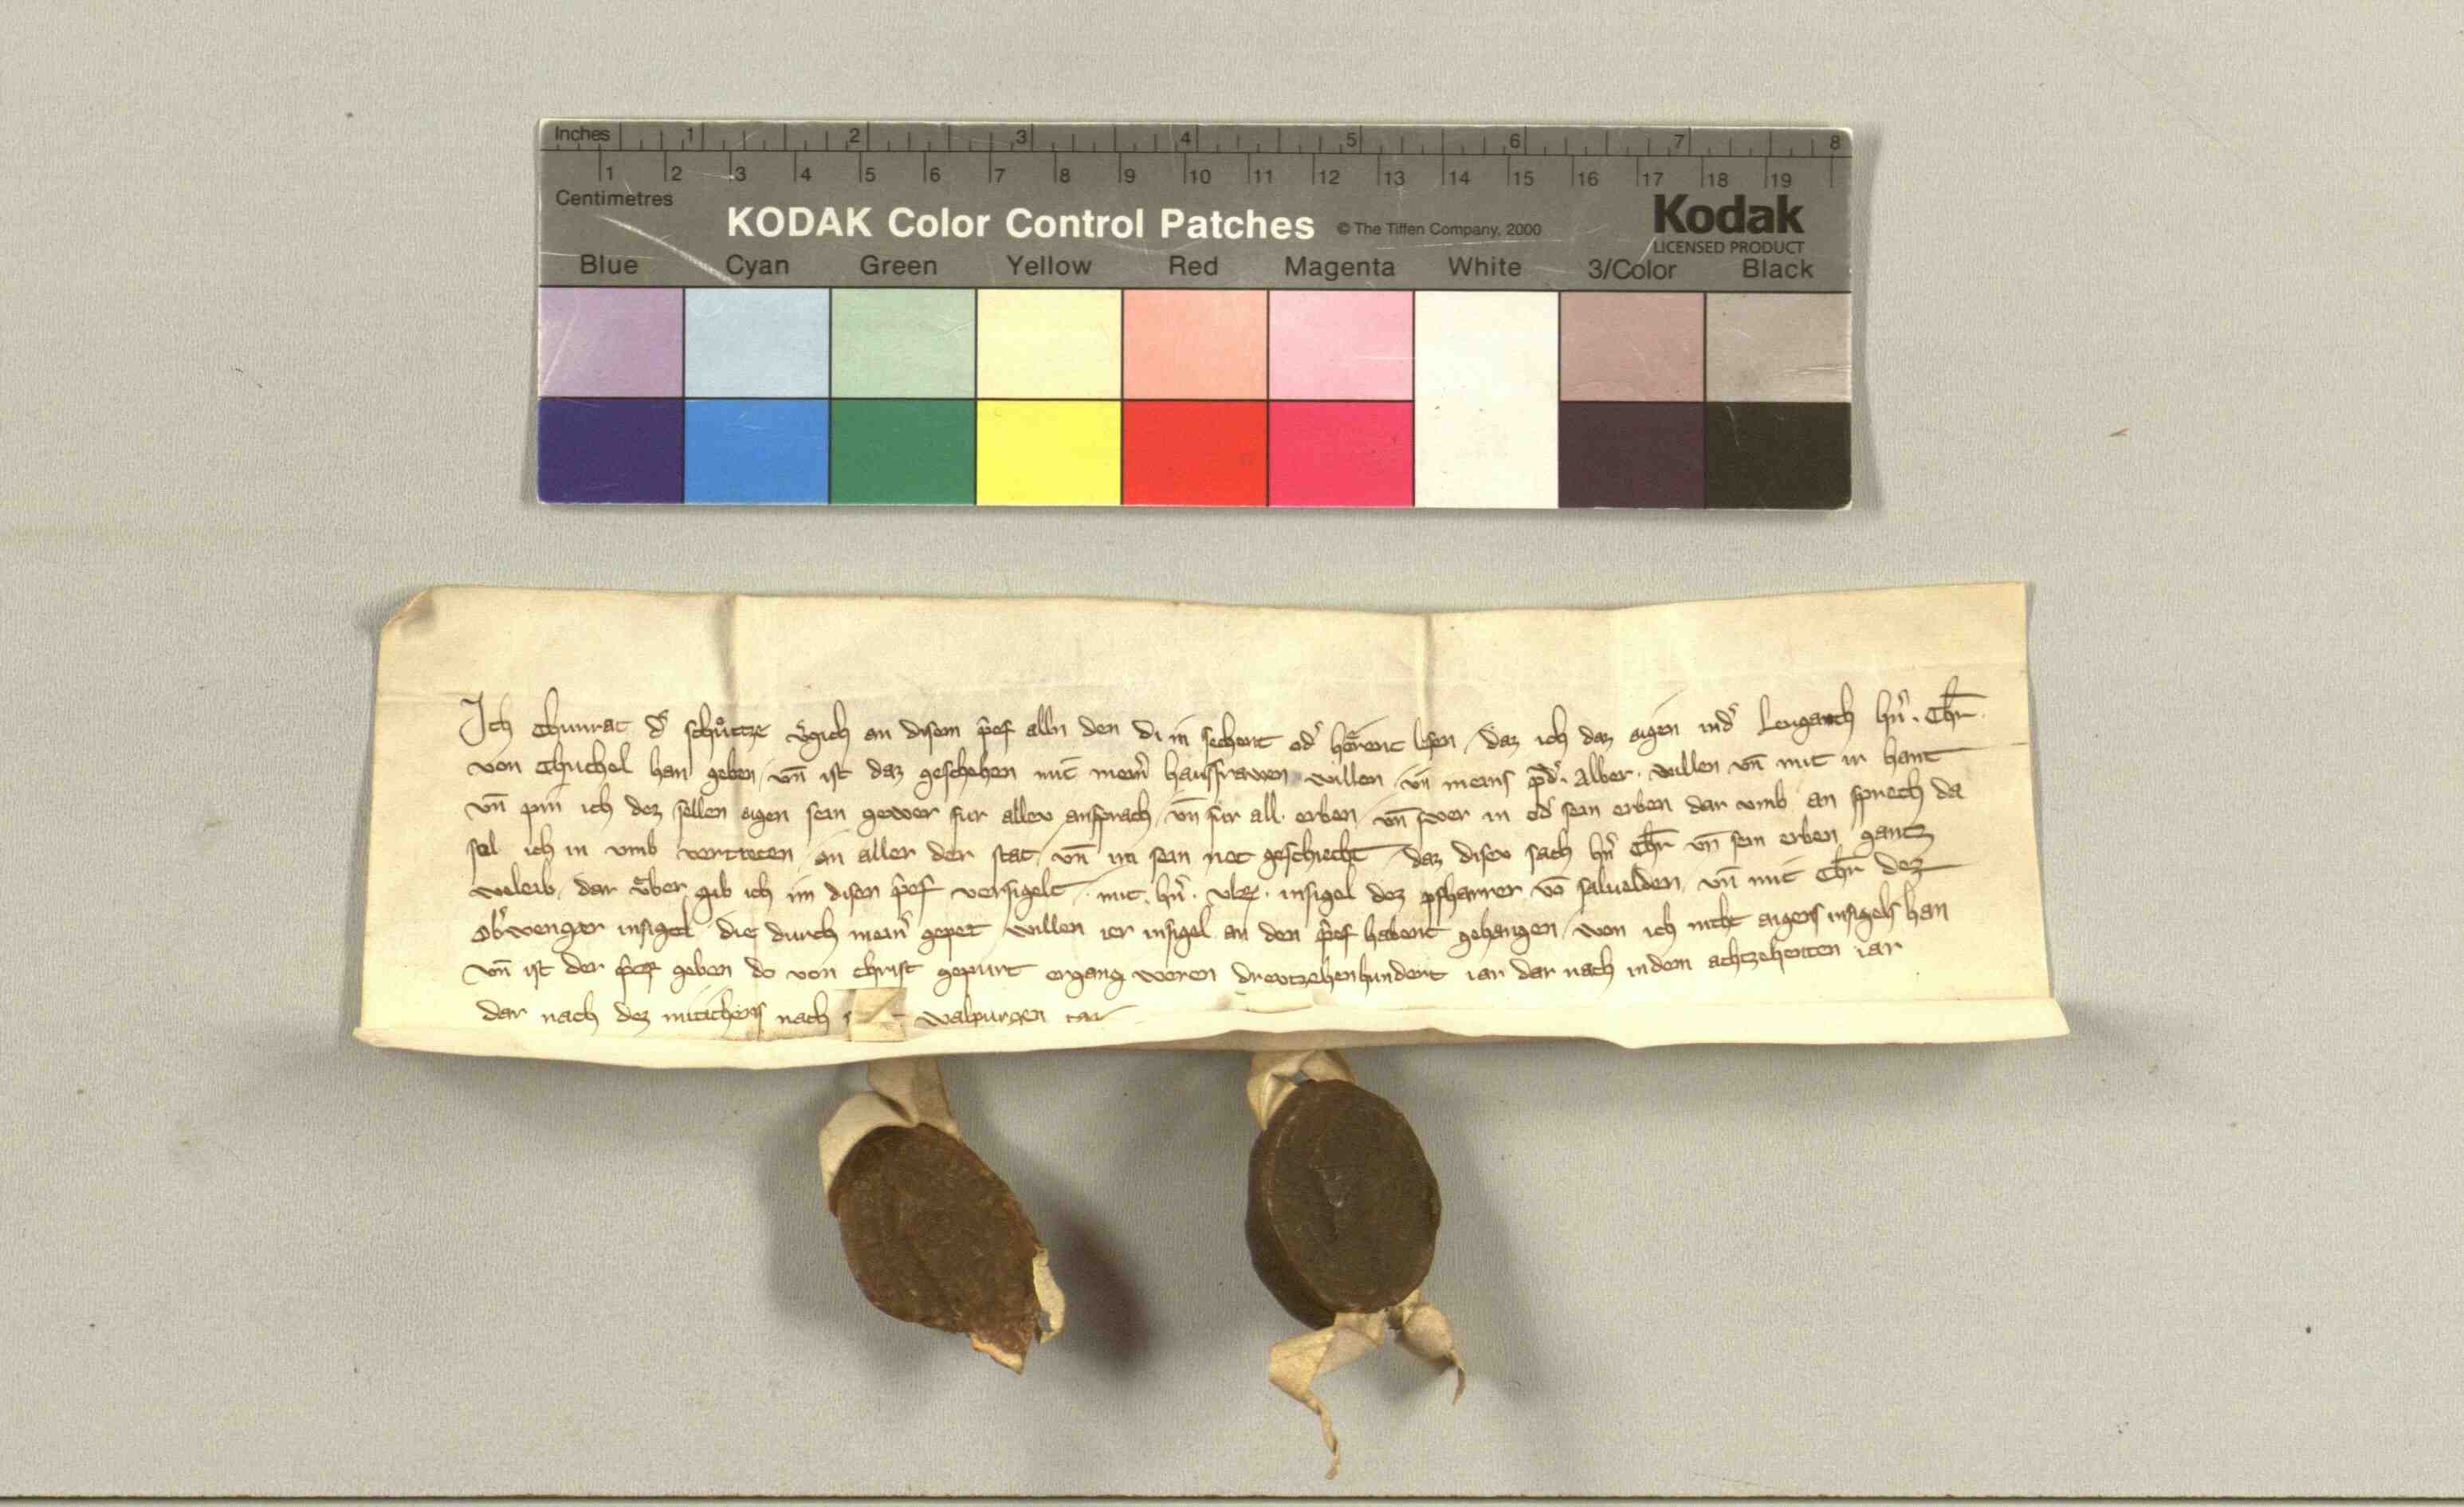 Inches 1 2 3 4 5 6 7 8
1 2 3 4 5 6 7 8 9 10 11 12 13 14 15 16 17 18 19
Centimetres
KODAK Color Control Patches © The Tiffen Company, 2000 Kodak
LICENSED PRODUCT
Blue Cyan Green Yellow Red Magenta White 3/Color Black
Ich Chunrat d͛ schuͤtze v͛gich an disem p͛ef alln den di in sehent od͛ hoͤrent lesen / daz ich daz aigen ind͛ Leugarch hn͛ . Chr̄
von Chuchel han geben / vn̄ ist daz geschehen mit mein͛ hausfrawen willen / vn̄ meins p͛d͛ . alber . willen vn̄ mit ir hant
vn̄ pin ich dez selben aigen sein gewer fur allev ansprach / vn̄ fur all . erben / vn̄ swer in od͛ sein erben dar vmb an sprech da
sol ich in vmb vertreten / an aller der stat / vn̄ im sein not geschiecht / daz disev sach hn͛ Chr̄ vn̄ sein erben gantz
weleib / dar vͤber gib ich im disen p͛ef versigelt / mit . hn͛ . vlr̄ . insigel dez pfharrer vō saluelden / vn̄ mit Chr̄ dez
ob͛wenger insigel / die durch mein͛ gepet willen ier insigel an den p͛ef habent gehangen / wan ich niht aigens insigels han
vn̄ ist der p͛ef geben do von christ gepurt ergang weren drevtzehenhundert iar dar nach indem achtzehenten iar
dar nach dez mitichens nach walpurgen tac